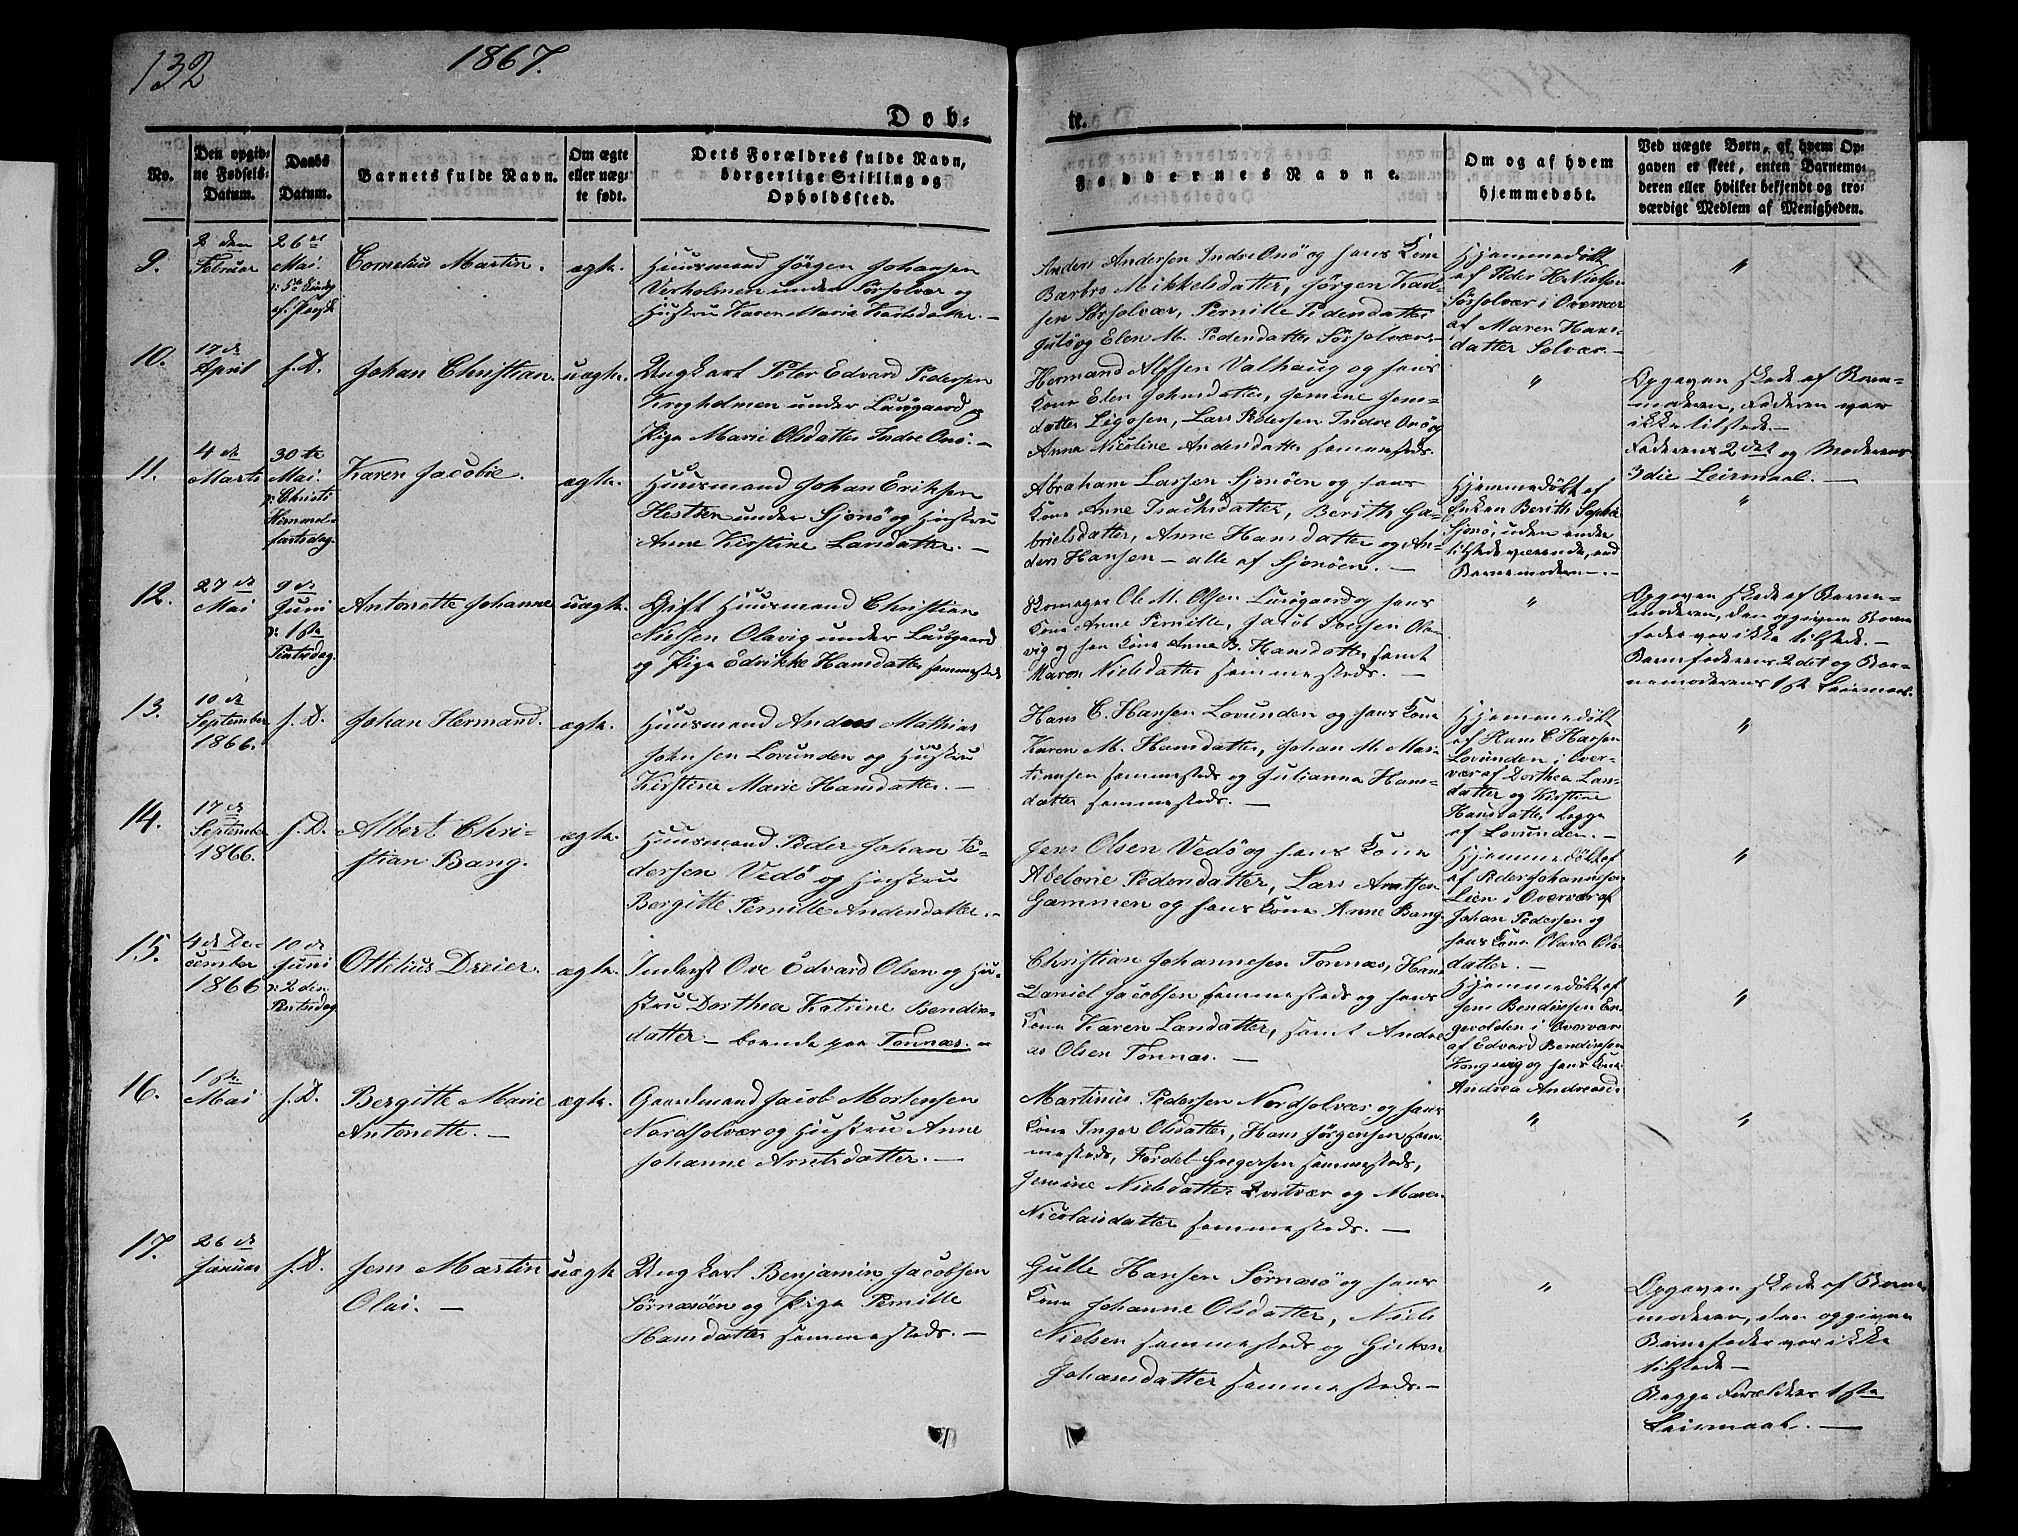 132
1867.
Døb-
te.
No.
Den opgid-
ne Fødsels-
Datum.
Daabs
Datum.
Barnets fulde Navn.
Om ægte
eller uæg-
te født.
Dets Forældres fulde Navn,
borgerlige Stilling og
Opholdssted.
Faddernes Navne.
Om og af hvem
hjemmedøbt.
Ved uægte Børn, af hvem Op-
gaven er skeet, enten Barnemo-
deren eller hvilket bekjendt og tro-
værdigt Medlem af Menigheden.
9.
2 den
Februar
26 de
Mai.
Cornelius Martin.
ægte.
Huusmand Jørgen Johansen
Verholmen under Sørsolvær og
Hustru Karen Maria Karlsdatter. —
Anders Andersen Indre Onø og hans Kone
Barbro Mikkelsdatter, Jørgen Karl-
sen Sørsolvær, Pernille Pedersdatter
og Elen M. Pedersdatter Sørsolvær. —
Hjemmedøbt
af Peder H. Nielsen
Sørsolvær i Overvær
af Maren Hans-
datter Solvær. —
"
10.
17 de
April
s. D.
Johan Christian.
uægte.
Ungkarl Peter Edvard Pedersen
Krogholmen under Lurøgaard og
Pige Marie Olsdatter Indre Onø. —
Hermand Alfsen Valhaug og hans
Kone Elen Johnsdatter, Jemine Jem-
datter Ligosen, Lars Pedersen Indre Onø og
Anne Nicoline Andersdatter sammesteds.
"
Opgaven skede af Barne-
moderen, Faderen var
ikke tilstede. —
Faderens 2det og Moderens
3die Leiermaal. —
11.
4 de
Marts
30 te
Mai.
ɔ: Christi
Himmel-
fartsdag.
Karen Jacobie.
ægte.
Huusmand Johan Eriksen
Hestøen under Sjonø og Hustru
Anne Kirstine Larsdatter. —
Abraham Larsen Sjonøen og hans
Kone Anne Isachsdatter, Berith Ga-
brielsdatter, Anne Hansdatter og An-
ders Hansen — alle af Sjonøen. —
Hjemmedøbt af
Enken Berith Sophie
Sjonø, uden andre
tilstedeværende, end
Barnemoderen. —
"
12.
27 de
Mai
9 de
Juni
ɔ: 1ste
Pintsedag.
Antonette Johanne
uægte.
Gift Huusmand Christian
Nielsen Olavig under Lurøgaard
og Pige Edvikke Hansdatter sammesteds
Skomager Ole M. Olsen Lurøgaard og hans
Kone Anne Pernille, Jacob Iversen Ola-
vig og hans Kone Anne B. Hansdatter samt
Maren Nielsdatter sammesteds. —
"
Opgaven skede af Barne-
moderen, den opgivne Barne
fader var ikke tilstede. —
Barnefaderens 2det og Bar-
nemoderens 1ste Leiermaal.
13.
10 de
September
1866.
s. D.
Johan Hermand.
ægte.
Huusmand Anders Mathias
Johnsen Lovunden og Hustru
Kirstine Marie Hansdatter. —
Hans C. Hansen Lovunden og hans Kone
Karen M. Hansdatter, Johan M. Mar-
tinusen sammesteds og Julianna Hans-
datter sammesteds. —
Hjemmedøbt
af Hans C Hansen
Lovunden i Over-
vær af Dorthea Lars-
datter og Kirstine
Hansdatter begge
af Lovunden. —
"
14.
17 de
September
1866.
s. D.
Albert Chri-
stian Bang.
ægte.
Huusmand Peder Johan Pe-
dersen Vedø og Hustru
Bergitte Pernille Andersdatter. —
Jens Olsen Vedø og hans Kone
Abelovie Pedersdatter, Lars Arntsen
Gammen og hans Kone Anne Bang.
Hjemmedøbt af
af Peder Johannesen
Lien i Overvær af
Johan Pedersen og
hans Kone Olava Ols-
datter. —
"
15.
4 de De-
cember
1866
10 de
Juni
ɔ: 2den
Pintsedag
Ottelius Dreier.
ægte.
Inderst Ove Edvard Olsen og Hu-
stru Dorthea Katrine Bendix-
datter — boende paa Tonnæs. —
Christian Johannesen Tonnæs, Hans
Daniel Jacobsen sammesteds og hans
Kone Karen Larsdatter, samt Andre
as Olsen Tonnæs. —
Hjemmedøbt af
Jens Bendixsen En-
gevolden i Overvær
af Edvard Bendixsen
Kongsvig og hans Kone
Andrea Andreasd.
"
16.
1ste
Mai
s. D.
Bergitte Marie
Antonette. —
ægte.
Gaardmand Jacob Mortensen
Nordsolvær og Hustru Anne
Johanne Arntsdatter. —
Martinus Pedersen Nordsolvær og hans
Kone Inger Olsdatter, Hans Jørgensen sam-
mesteds, Fordel Gregersen sammesteds,
Jemine Nielsdatter Qvitvær og Maren
Nicolaisdatter sammesteds. —
"
"
17.
26 de
Januar
s. D.
Jens Martin
Olai. —
uægte
Ungkarl Benjamin Jacobsen
Sørnæsøen og Pige Pernille
Hansdatter sammesteds. —
Gulle Hansen Sørnæsø og hans
Kone Johanne Olsdatter, Niels
Nielsen sammesteds og Girken
Johansdatter sammesteds. —
"
Opgaven skede af Barne
moderen, den opgivne
Barnefader var ikke
tilstede —
Begge Forældres 1ste
Leiermaal. —